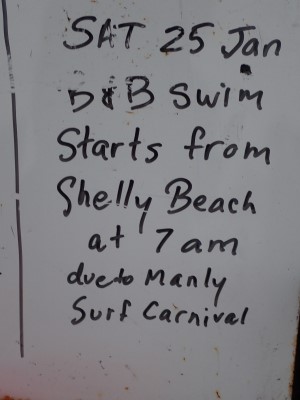 SAT 25 Jan
D&B Swim
Starts from
Shelly Beach
at 7am
due to Manly
Surf Carnival